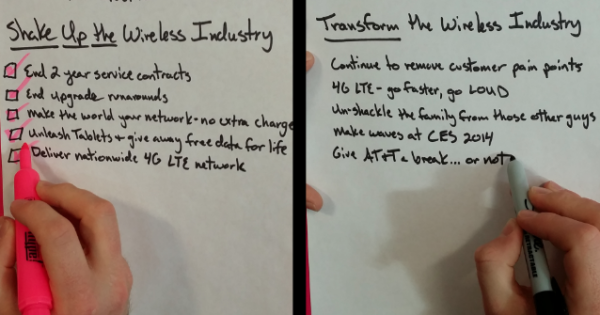 Shake Up the Wireless Industry
End 2 year service contracts
End upgrade runarounds
make the world your network - no extra charge
Unleash Tablets + give away free data for life
Deliver nationwide 4G LTE network
Transform the Wireless Industry
Continue to remove customer pain points
4G LTE - go faster, go LOUD
Un-shackle the family from those other guys
make waves at CES 2014
Give AT+T a break... or not